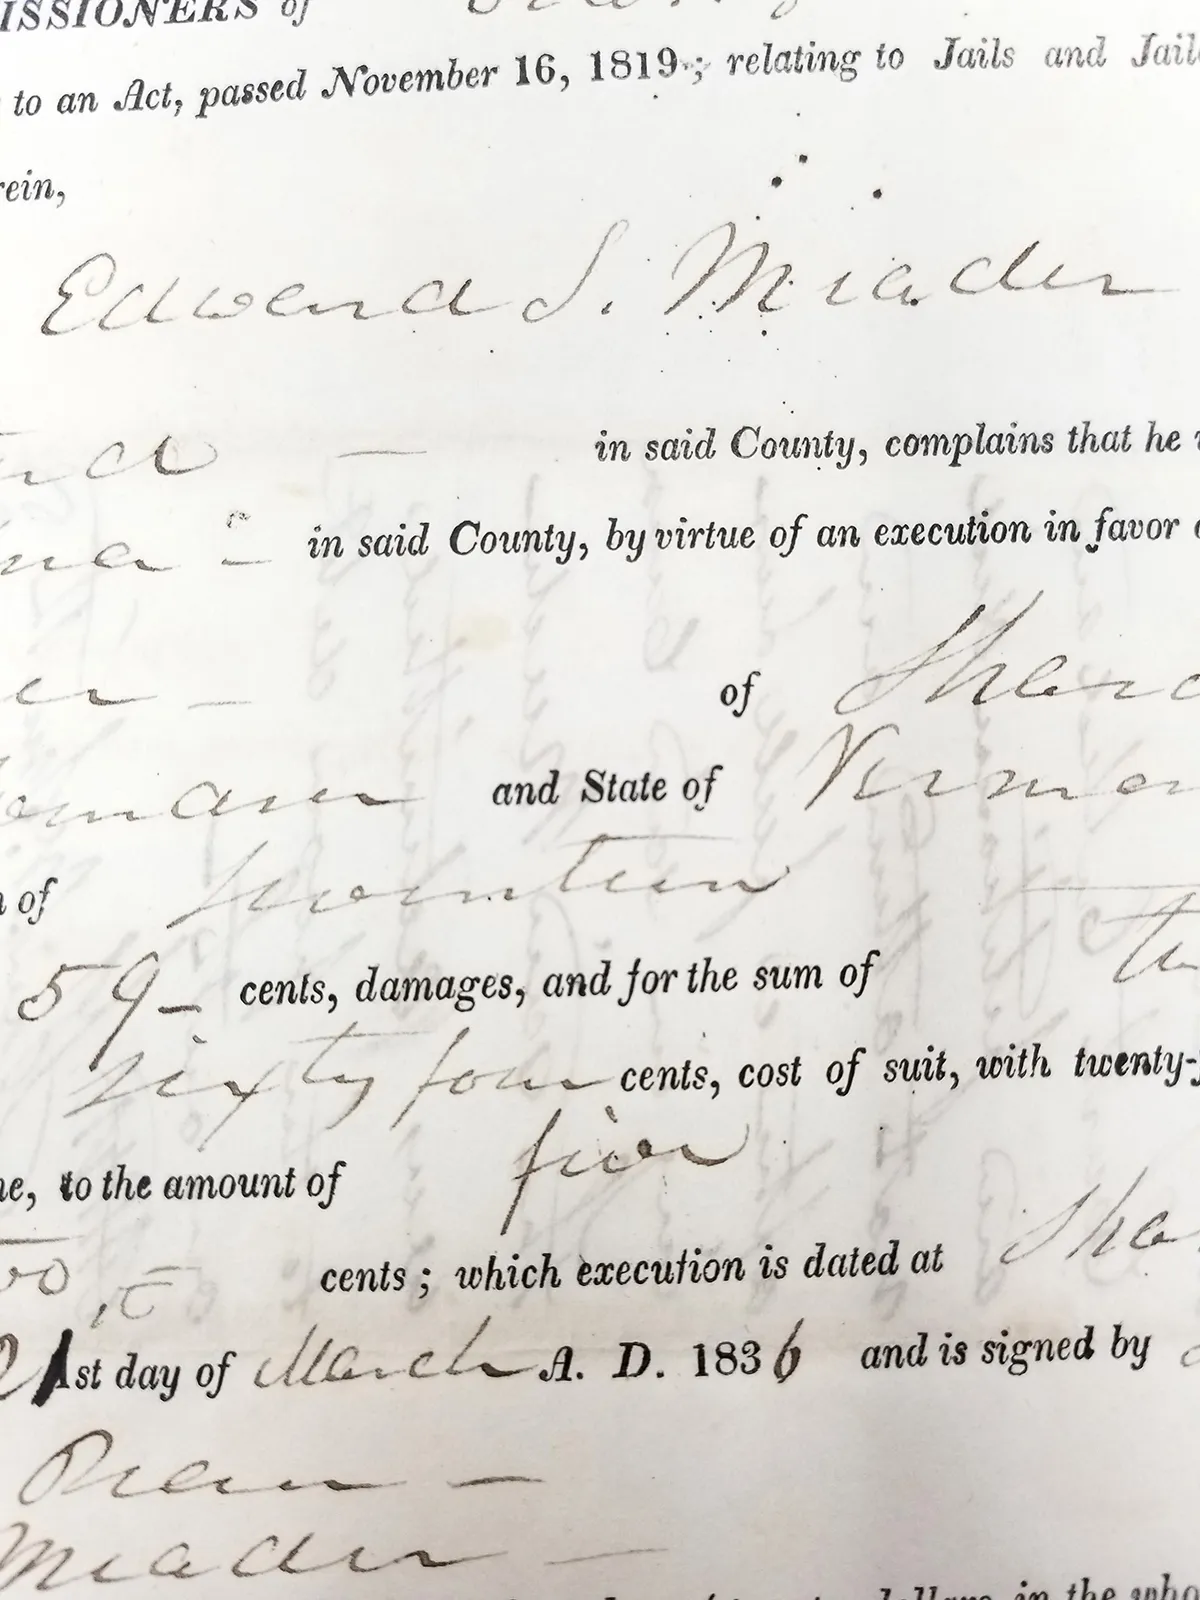 ISSIONERS of
to an Act, passed November 16, 1819; relating to Jails and Jail
rein,
Edward S. Meader
in said County, complains that he
in said County, by virtue of an execution in favor
er - of Sharo
and State of Vermon
of
59- cents, damages, and for the sum of
sixty four cents, cost of suit, with twenty-
ne, to the amount of five
cents; which execution is dated at Sha
21st day of March A. D. 1836 and is signed by
Meader -
dollars in the who